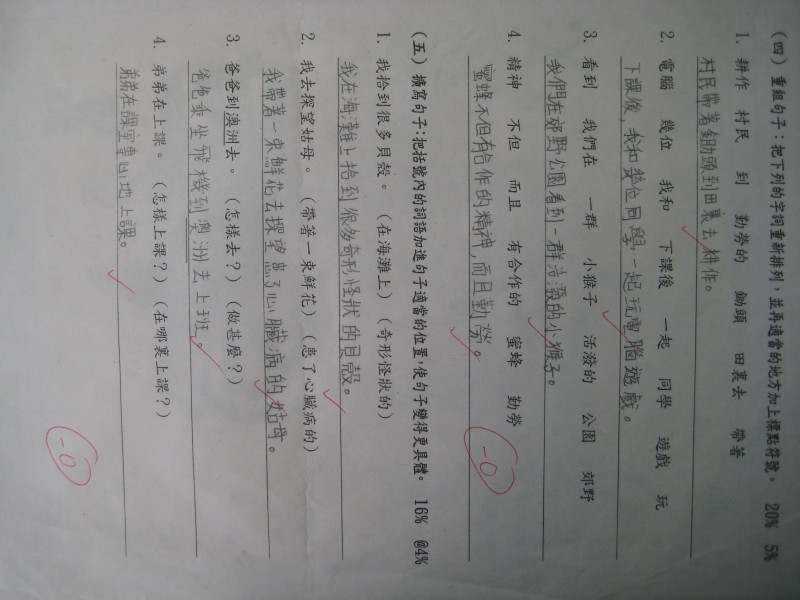 （四）重組句子：把下列的字詞重新排列，並再適當的地方加上標點符號。 20% 5%
1. 耕作 村民 到 勤勞的 鋤頭 田裏去 帶著
村民帶著鋤頭到田裏去耕作。
2. 電腦 幾位 我和 下課後 一起 同學 遊戲 玩
下課後，我和幾位同學一起玩電腦遊戲。
3. 看到 我們在 一群 小猴子 活潑的 公園 郊野
我們在郊野公園看到一群活潑的小猴子。
4. 精神 不但 而且 有合作的 蜜蜂 勤勞
蜜蜂不但有合作的精神，而且勤勞。
-0
（五）擴寫句子：把括號內的詞語加進句子適當的位置，使句子變得更具體。 16% @4%
1. 我拾到很多貝殼。（在海灘上）（奇形怪狀的）
我在海灘上拾到很多奇形怪狀的貝殼。
2. 我去探望姑母。（帶著一束鮮花）（患了心臟病的）
我帶著一束鮮花去探望患了心臟病的姑母。
3. 爸爸到澳洲去。（怎樣去？）（做甚麼？）
爸爸乘坐飛機到澳洲去上班。
4. 弟弟在上課。（怎樣上課？）（在哪裏上課？）
弟弟在課室專心地上課。
-0